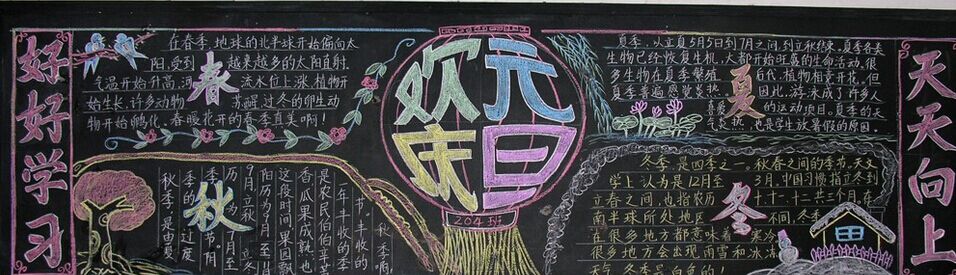 好好学习
在春季,地球的北半球开始偏向太
阳,受到 越来越多的太阳直射,
气温开始升高,河 流水位上涨,植物开
始生长,许多动物 苏醒,过冬的卵生动
物开始孵化,春暖花开的春季真美啊!
春
欢庆
元旦
204班
夏季,从立夏5月5日到7月之间,到立秋结束,夏季各类
生物已经恢复生机,大都开始旺盛的生命活动,很
多生物在夏季繁殖 后代,植物相竞开花,但
夏季普遍感觉炎热, 因此,游泳成了许多人
喜爱 的运动项目。夏季的天
气炎热,也是学生放暑假的原因。
夏
秋
秋季啊,
节。
一年丰收的季
是农民伯伯辛
香瓜果成熟,
这段时间果园飘
阳历为9月至11月
9月,立秋 立冬
历为 7月至
季的 节,阴
季的过度
秋季,是由夏
冬季,是四季之一,秋春之间的季节。天文
学上认为是12月至 3月,中国习惯指立冬到
立春之间,也指农历 十、十一、十二共三个月,在
南半球所处地区 不同,冬季
在很多地方都意味着 寒冷。
很多地方会出现雨雪和冰冻
天气,冬季是白色的!
冬
天天向上